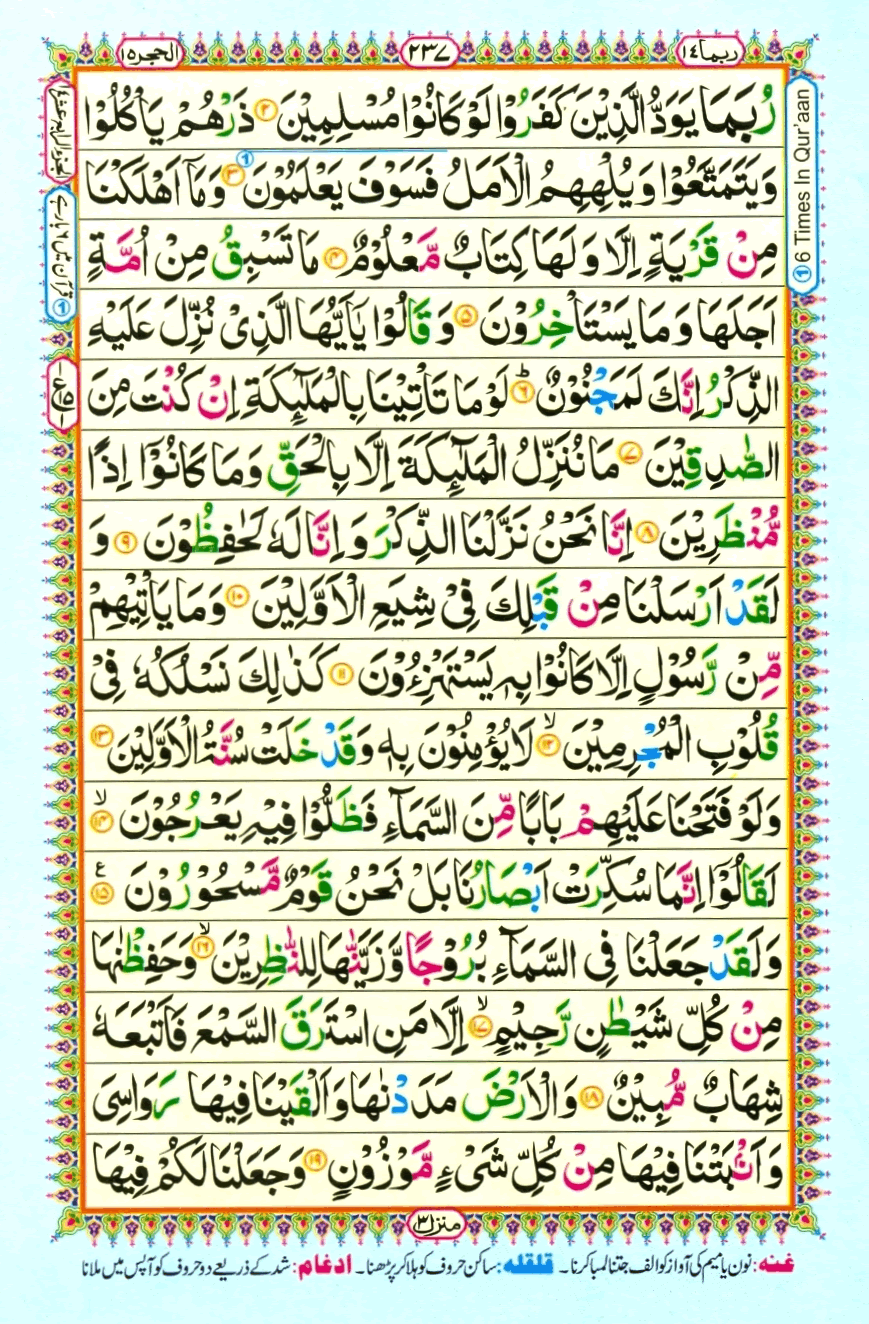 ربما ١٤
٢٣٧
الحجر ١٥
رُبَمَا يَوَدُّ الَّذِيْنَ كَفَرُوْا لَوْ كَانُوْا مُسْلِمِيْنَ ۝۲ ذَرْهُمْ يَاْكُلُوْا
وَيَتَمَتَّعُوْا وَيُلْهِهِمُ الْاَمَلُ فَسَوْفَ يَعْلَمُوْنَ ۝۳ وَمَاۤ اَهْلَكْنَا
مِنْ قَرْيَةٍ اِلَّا وَلَهَا كِتَابٌ مَّعْلُوْمٌ ۝۴ مَا تَسْبِقُ مِنْ اُمَّةٍ
اَجَلَهَا وَمَا يَسْتَاْخِرُوْنَ ۝۵ وَقَالُوْا يٰۤاَيُّهَا الَّذِىْ نُزِّلَ عَلَيْهِ
الذِّكْرُ اِنَّكَ لَمَجْنُوْنٌ ؕ۝۶ لَوْ مَا تَاْتِيْنَا بِالْمَلٰٓئِكَةِ اِنْ كُنْتَ مِنَ
الصّٰدِقِيْنَ ۝۷ مَا نُنَزِّلُ الْمَلٰٓئِكَةَ اِلَّا بِالْحَقِّ وَمَا كَانُوْۤا اِذًا
مُّنْظَرِيْنَ ۝۸ اِنَّا نَحْنُ نَزَّلْنَا الذِّكْرَ وَاِنَّا لَهٗ لَحٰفِظُوْنَ ۝۹ وَ
لَقَدْ اَرْسَلْنَا مِنْ قَبْلِكَ فِىْ شِيَعِ الْاَوَّلِيْنَ ۝۱۰ وَمَا يَاْتِيْهِمْ
مِّنْ رَّسُوْلٍ اِلَّا كَانُوْا بِهٖ يَسْتَهْزِءُوْنَ ۝۱۱ كَذٰلِكَ نَسْلُكُهٗ فِىْ
قُلُوْبِ الْمُجْرِمِيْنَ ۙ۝۱۲ لَا يُؤْمِنُوْنَ بِهٖ وَقَدْ خَلَتْ سُنَّةُ الْاَوَّلِيْنَ ۝۱۳
وَلَوْ فَتَحْنَا عَلَيْهِمْ بَابًا مِّنَ السَّمَآءِ فَظَلُّوْا فِيْهِ يَعْرُجُوْنَ ۙ۝۱۴
لَقَالُوْۤا اِنَّمَا سُكِّرَتْ اَبْصَارُنَا بَلْ نَحْنُ قَوْمٌ مَّسْحُوْرُوْنَ ۝۱۵ ع
وَلَقَدْ جَعَلْنَا فِى السَّمَآءِ بُرُوْجًا وَّزَيَّنّٰهَا لِلنّٰظِرِيْنَ ۙ۝۱۶ وَحَفِظْنٰهَا
مِنْ كُلِّ شَيْطٰنٍ رَّجِيْمٍ ۙ۝۱۷ اِلَّا مَنِ اسْتَرَقَ السَّمْعَ فَاَتْبَعَهٗ
شِهَابٌ مُّبِيْنٌ ۝۱۸ وَالْاَرْضَ مَدَدْنٰهَا وَاَلْقَيْنَا فِيْهَا رَوَاسِىَ
وَاَنْۢبَتْنَا فِيْهَا مِنْ كُلِّ شَىْءٍ مَّوْزُوْنٍ ۝۱۹ وَجَعَلْنَا لَكُمْ فِيْهَا
① 6 Times In Qur'aan
الجزء الرابع عشر ١٤
قرآن میں ٦ بار ہے ①
منزل ٣
غنه: نون یا میم کی آواز کو الف جتنا لمبا کرنا۔ قلقله: ساکن حروف کو ہلا کر پڑھنا۔ ادغام: شد کے ذریعے دو حروف کو آپس میں ملانا